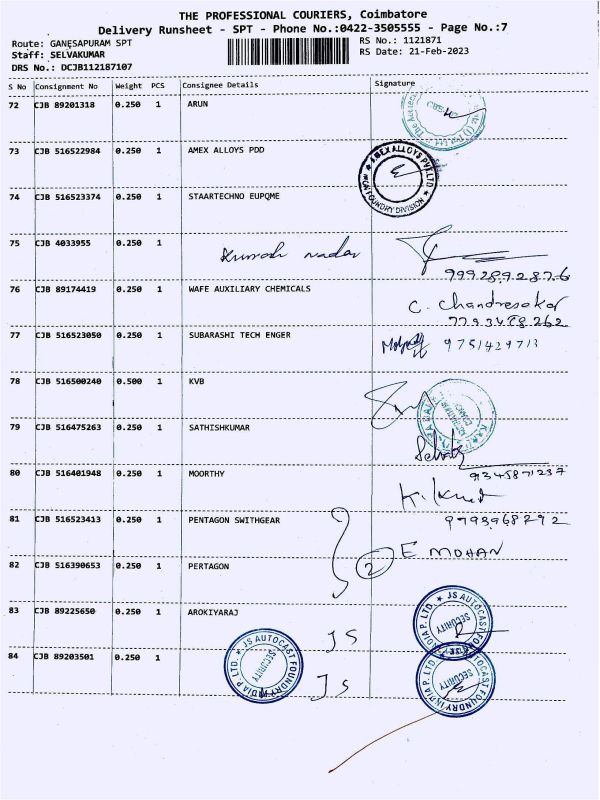 THE PROFESSIONAL COURIERS, Coimbatore
Delivery Runsheet - SPT - Phone No.:0422-3505555 - Page No.:7
Route: GANESAPURAM SPT
RS No.:1121871
Staff: SELVAKUMAR
RS Date: 21-Feb-2023
DRS No.: DCJB112187107
S No Consignment No Weight PCS Consignee Details Signature
72 CJB 89201318 0.250 1 ARUN
73 CJB 516522984 0.250 1 AMEX ALLOYS PDD
AMEX ALLOYS PVT.LTD
FOUNDRY DIVISION
74 CJB 516523374 0.250 1 STAARTECHNO EUPQME
75 CJB 4033955 0.250 1
9992892876
76 CJB 89174419 0.250 1 WAFE AUXILIARY CHEMICALS
C. Chandresekar
77 CJB 516523050 0.250 1 SUBARASHI TECH ENGER
9751429713
78 CJB 516500240 0.500 1 KVB
79 CJB 516475263 0.250 1 SATHISHKUMAR
80 CJB 516401948 0.250 1 MOORTHY
81 CJB 516523413 0.250 1 PENTAGON SWITHGEAR
9793968792
2 E MOHAN
82 CJB 516390653 0.250 1 PERTAGON
83 CJB 89225650 0.250 1 AROKIYARAJ
JS
JS AUTOCAST FOUNDRY INDIA P. LTD.
SECURITY
84 CJB 89203501 0.250 1
JS AUTOCAST FOUNDRY INDIA P. LTD.
SECURITY
JS
JS AUTOCAST FOUNDRY INDIA P. LTD.
SECURITY